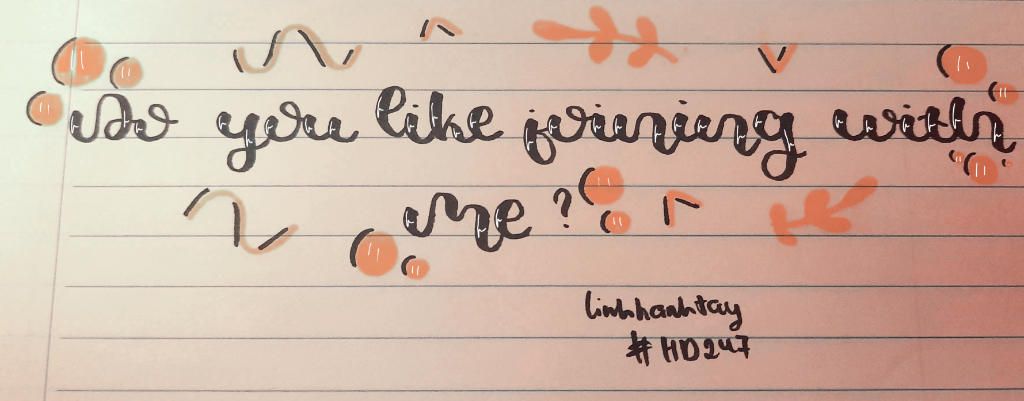 Do you like joining with
me?
linhhanhtay
#HD247